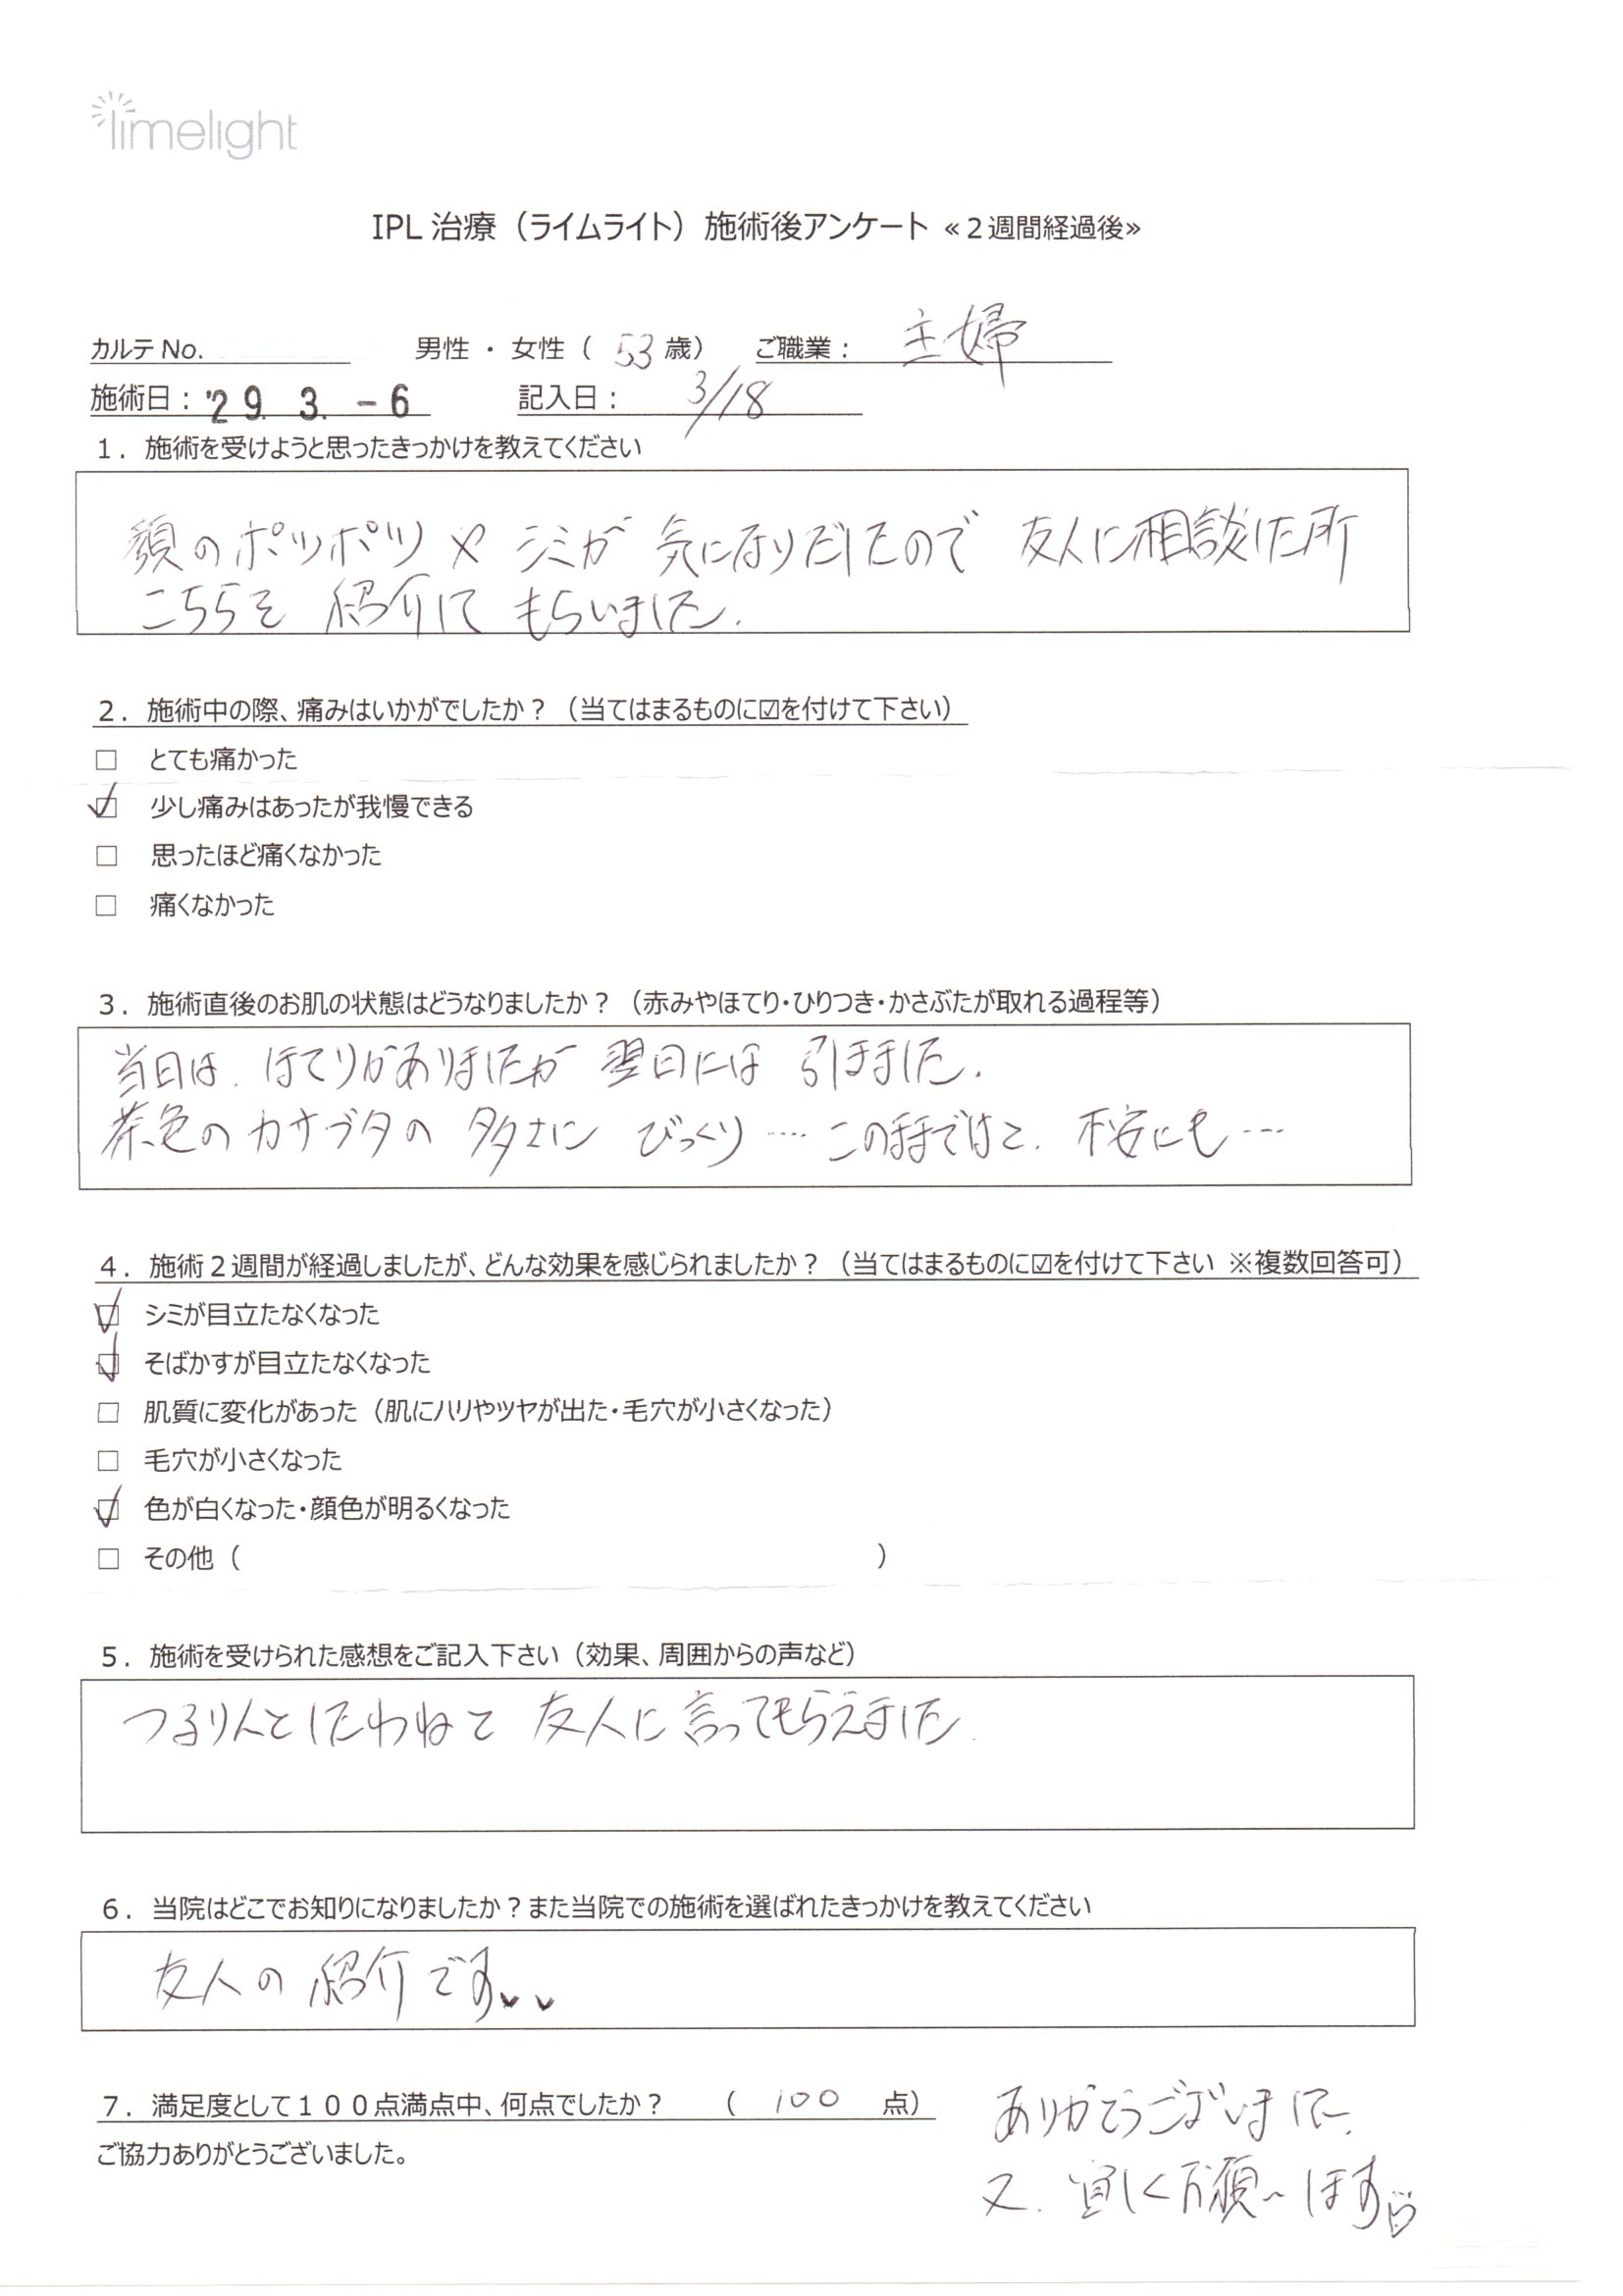 limelight
IPL 治療（ライムライト）施術後アンケート ≪２週間経過後≫
カルテ No. 男性 ・ 女性 （ 53 歳） ご職業： 主婦
施術日： '29. 3. -6 記入日： 3/18
１．施術を受けようと思ったきっかけを教えてください
顔のポツポツや シミが 気になりだしたので 友人に相談した所
こちらを 紹介して もらいました.
２．施術中の際、痛みはいかがでしたか？（当てはまるものに☑を付けて下さい）
□ とても痛かった
☑ 少し痛みはあったが我慢できる
□ 思ったほど痛くなかった
□ 痛くなかった
３．施術直後のお肌の状態はどうなりましたか？（赤みやほてり・ひりつき・かさぶたが取れる過程等）
当日は、ほてりがありましたが 翌日には 引きました.
茶色の カサブタの 多さに びっくり …. このままではと、不安にも…
４．施術２週間が経過しましたが、どんな効果を感じられましたか？（当てはまるものに☑を付けて下さい ※複数回答可）
☑ シミが目立たなくなった
☑ そばかすが目立たなくなった
□ 肌質に変化があった（肌にハリやツヤが出た・毛穴が小さくなった）
□ 毛穴が小さくなった
☑ 色が白くなった・顔色が明るくなった
□ その他（ ）
５．施術を受けられた感想をご記入下さい（効果、周囲からの声など）
つるりんとしたわねと 友人に 言ってもらえました.
６．当院はどこでお知りになりましたか？また当院での施術を選ばれたきっかけを教えてください
友人の 紹介です
７．満足度として１００点満点中、何点でしたか？ （ 100 点）
ご協力ありがとうございました。
ありがとうございました.
又、宜しくお願いします